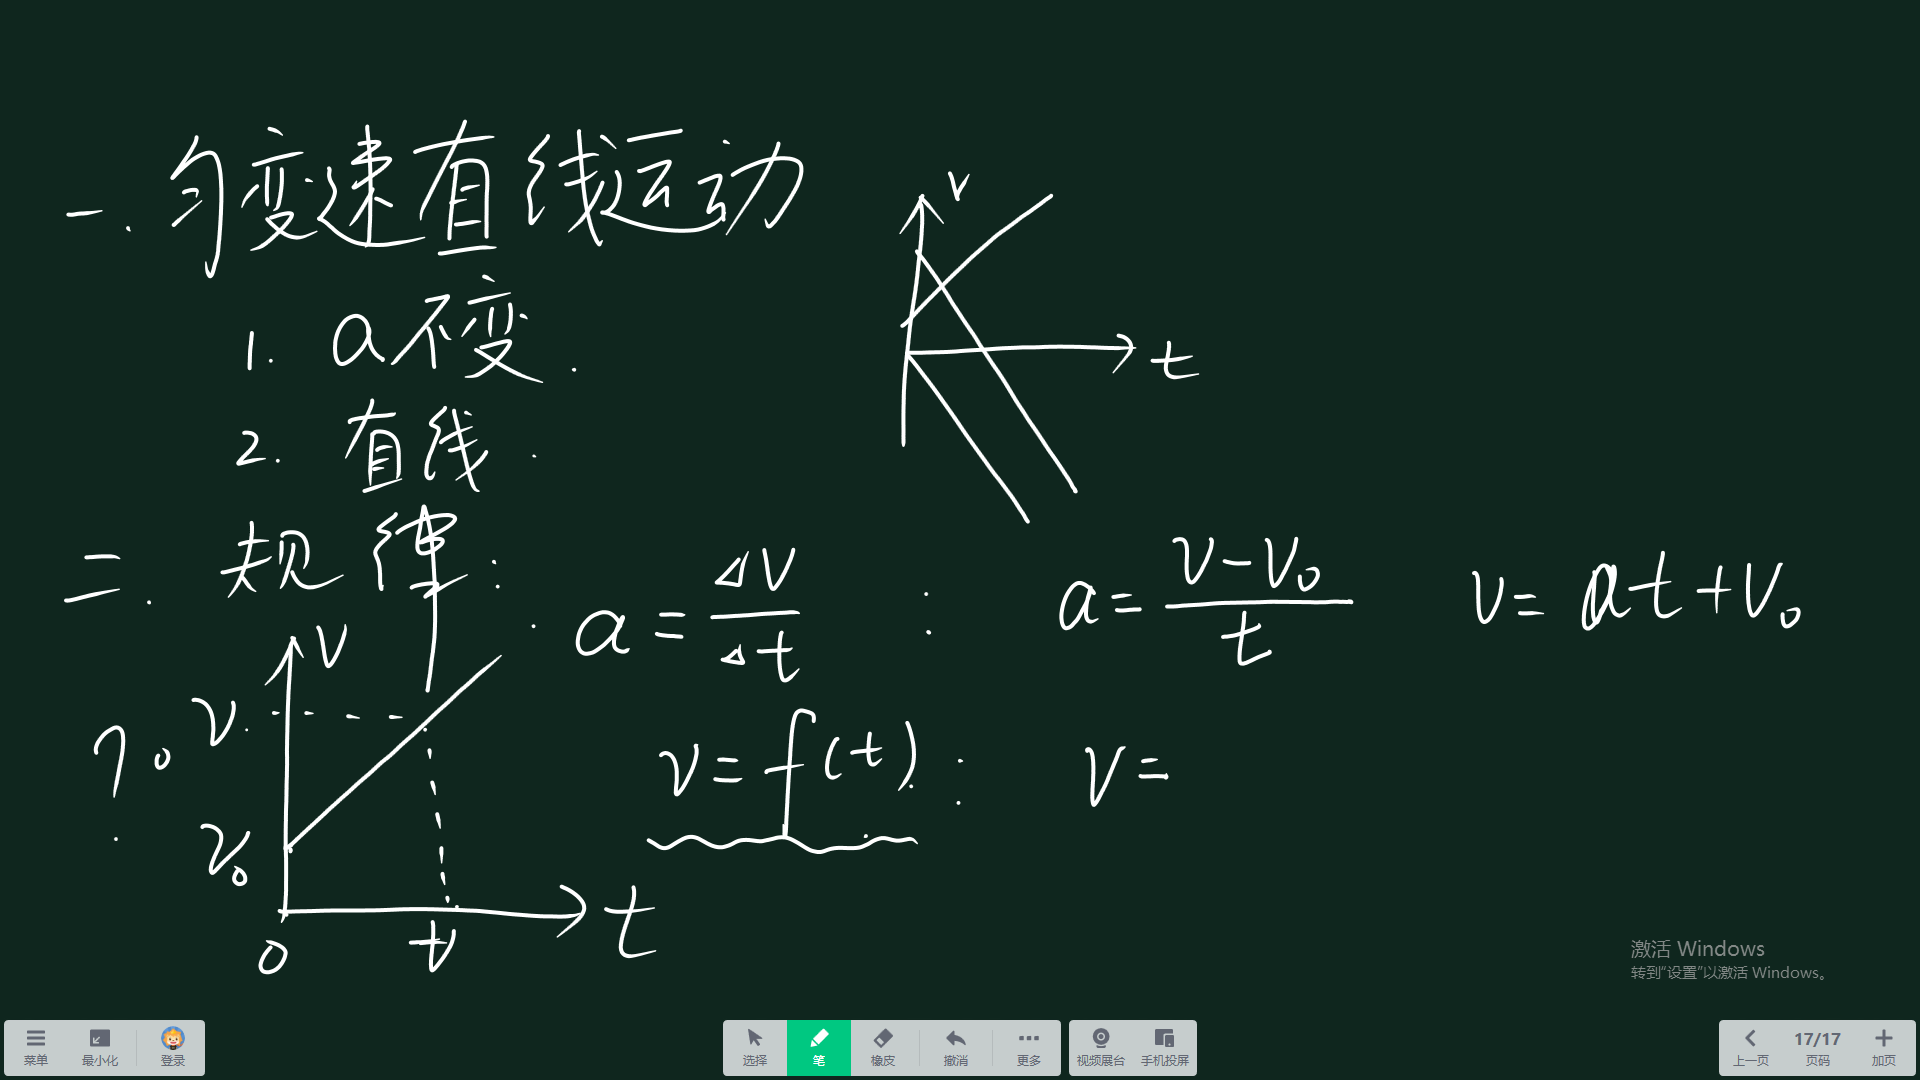 一.匀变速直线运动
v
1. a不变.
t
2. 直线.
二.规律:
a = Δv/Δt :
a = v-v₀/t
v = at+v₀
v
v
?
v = f(t) :
v =
v₀
t
0
t
激活 Windows
转到“设置”以激活 Windows。
菜单 最小化 登录 选择 笔 橡皮 撤消 更多 视频展台 手机投屏 上一页 17/17 页码 加页